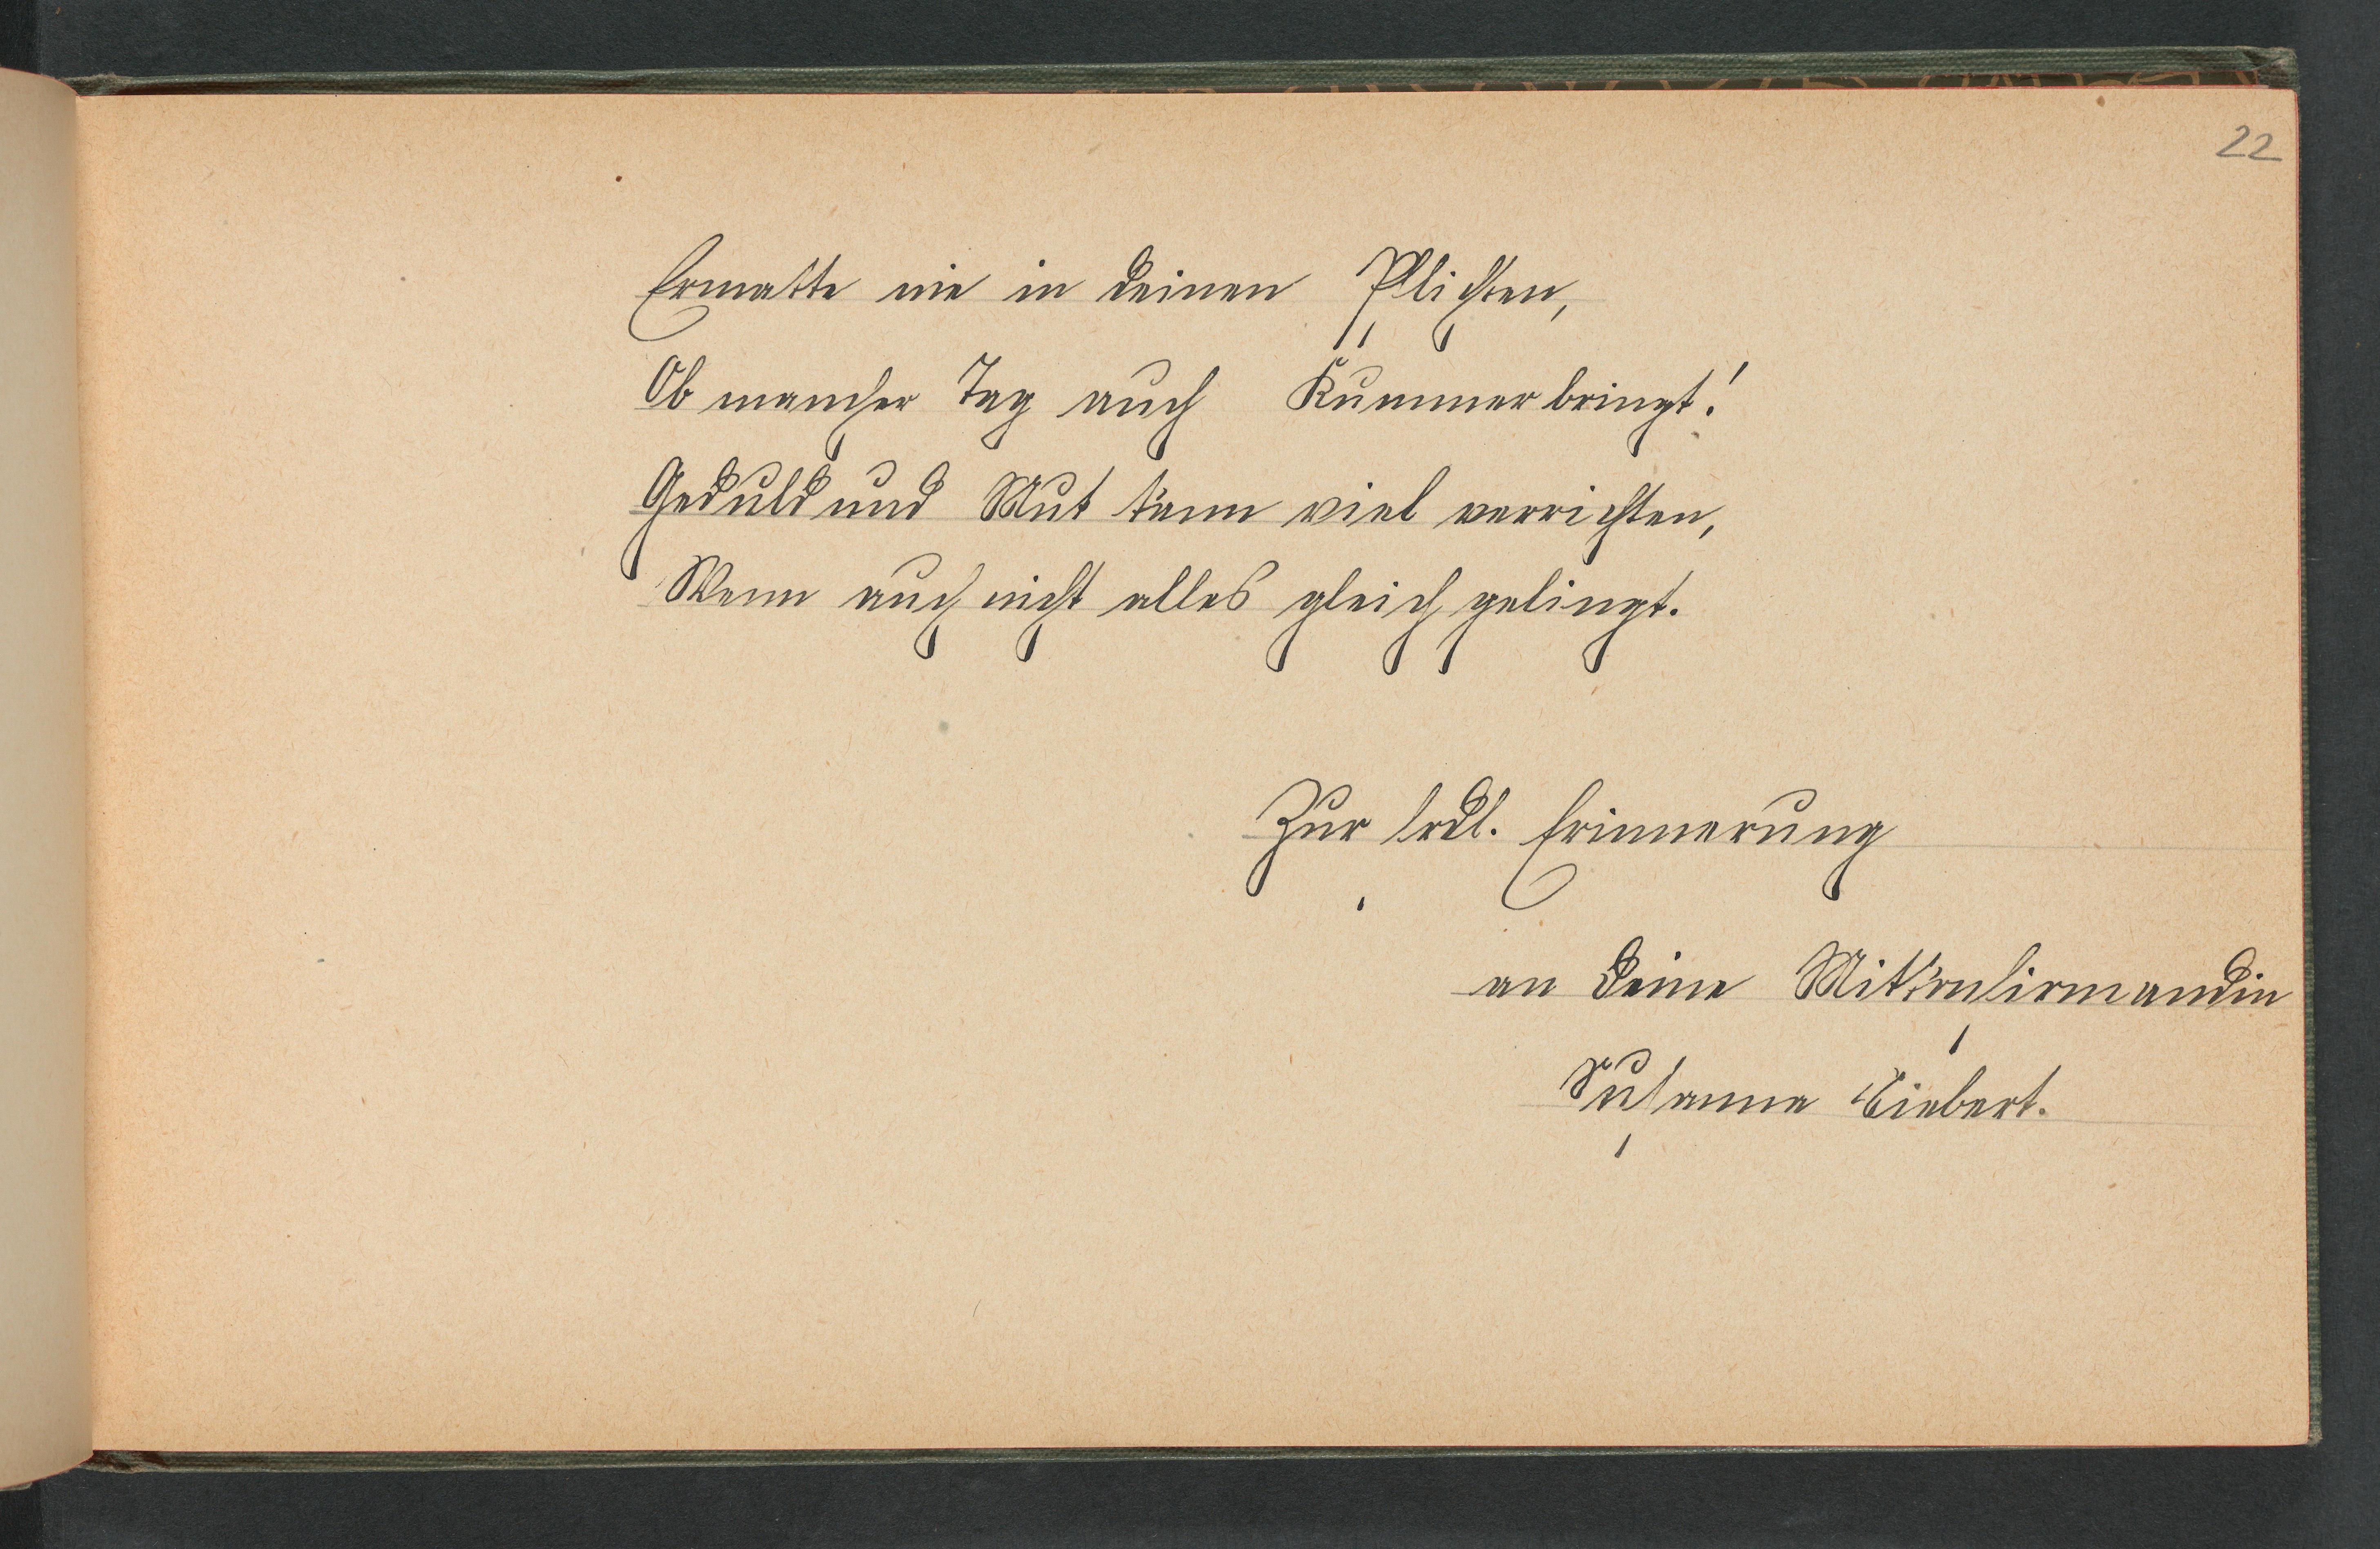 22
Ermatte nie in deinen Pflichten,
Ob mancher Tag auch Kummer bringt!
Geduld und Mut kann viel verrichten,
Wenn auch nicht alles gleich gelingt.
Zur frdl. Erinnerung
an Deine Mitkonfirmandin
Susanna